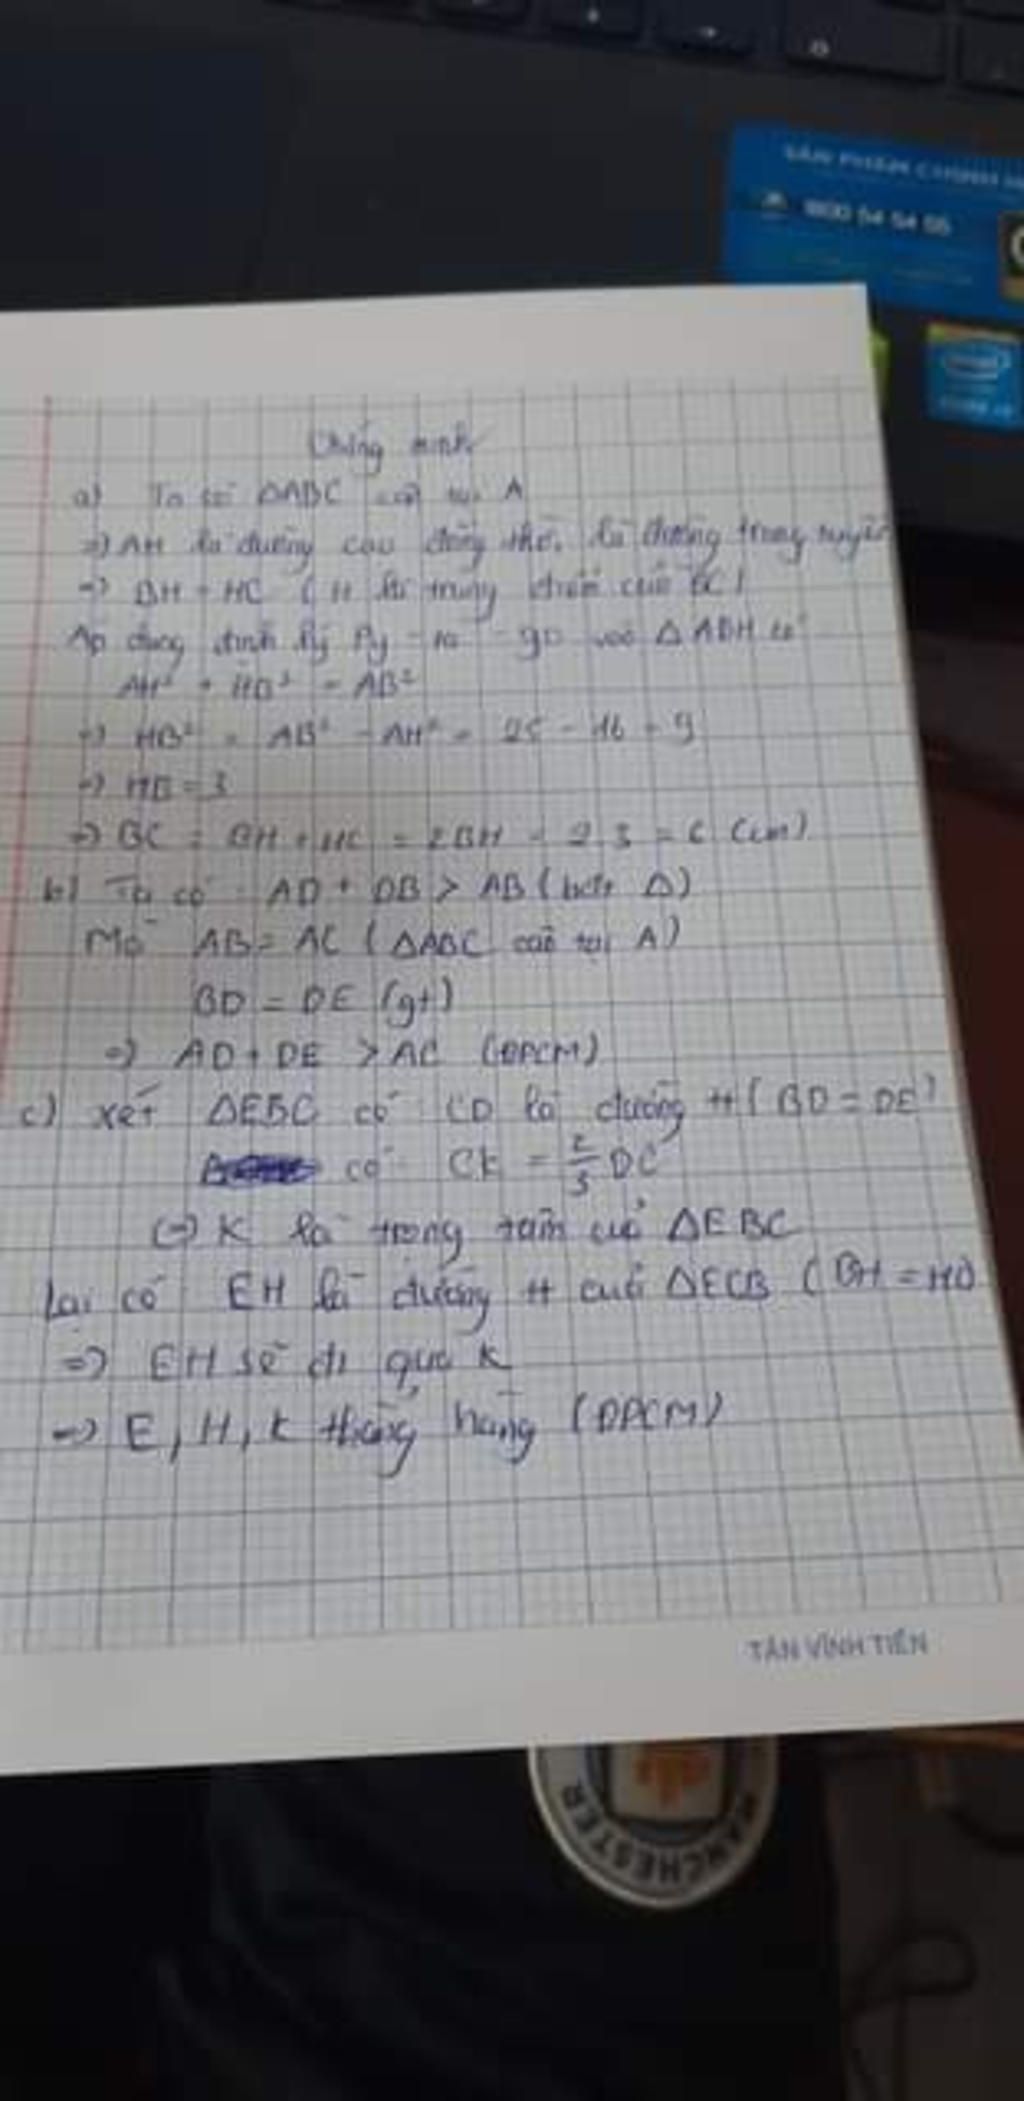 SẢN PHẨM CHÍNH
1800 54 54 55
intel
Chứng minh
a) Ta có ΔABC cân tại A
=> AH là đường cao đồng thời là đường trung tuyến
=> BH = HC (H là trung điểm của BC)
Áp dụng định lý Py-ta-go vào ΔABH có
AH² + HB² = AB²
=> HB² = AB² - AH² = 25 - 16 = 9
=> HB = 3
=> BC = BH + HC = 2BH = 2.3 = 6 (cm)
b) Ta có AD + DB > AB (bđt Δ)
Mà AB = AC (ΔABC cân tại A)
BD = DE (gt)
=> AD + DE > AC (ĐPCM)
c) xét ΔEBC có CD là đường tt (BD = DE)
có CK = 2/3 DC
=> K là trọng tâm của ΔEBC
Lại có EH là đường tt của ΔECB (BH = HC)
=> EH sẽ đi qua K
=> E, H, K thẳng hàng (ĐPCM)
TÂN VĨNH TIẾN
MANCHESTER